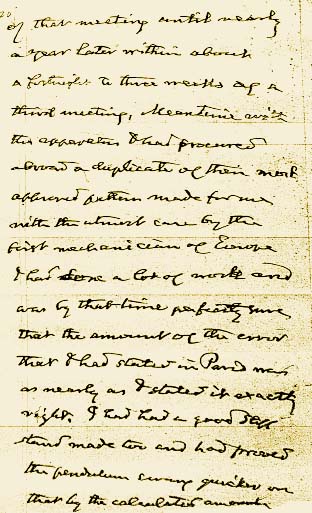 20
of that meeting until nearly
a year later within about
a fortnight to three weeks of a
third meeting, Meantime with
this apparatus I had procured
abroad a duplicate of their most
approved pattern made for me
with the utmost care by the
first mechanician of Europe
I had done a lot of work and
was by that time perfectly sure
that the amount of the error
that I had stated in Paris was
as nearly as I stated it exactly
right. I had had a good stiff
stand made too and had proved
the pendulum swung quicker on
that by the calculated amount